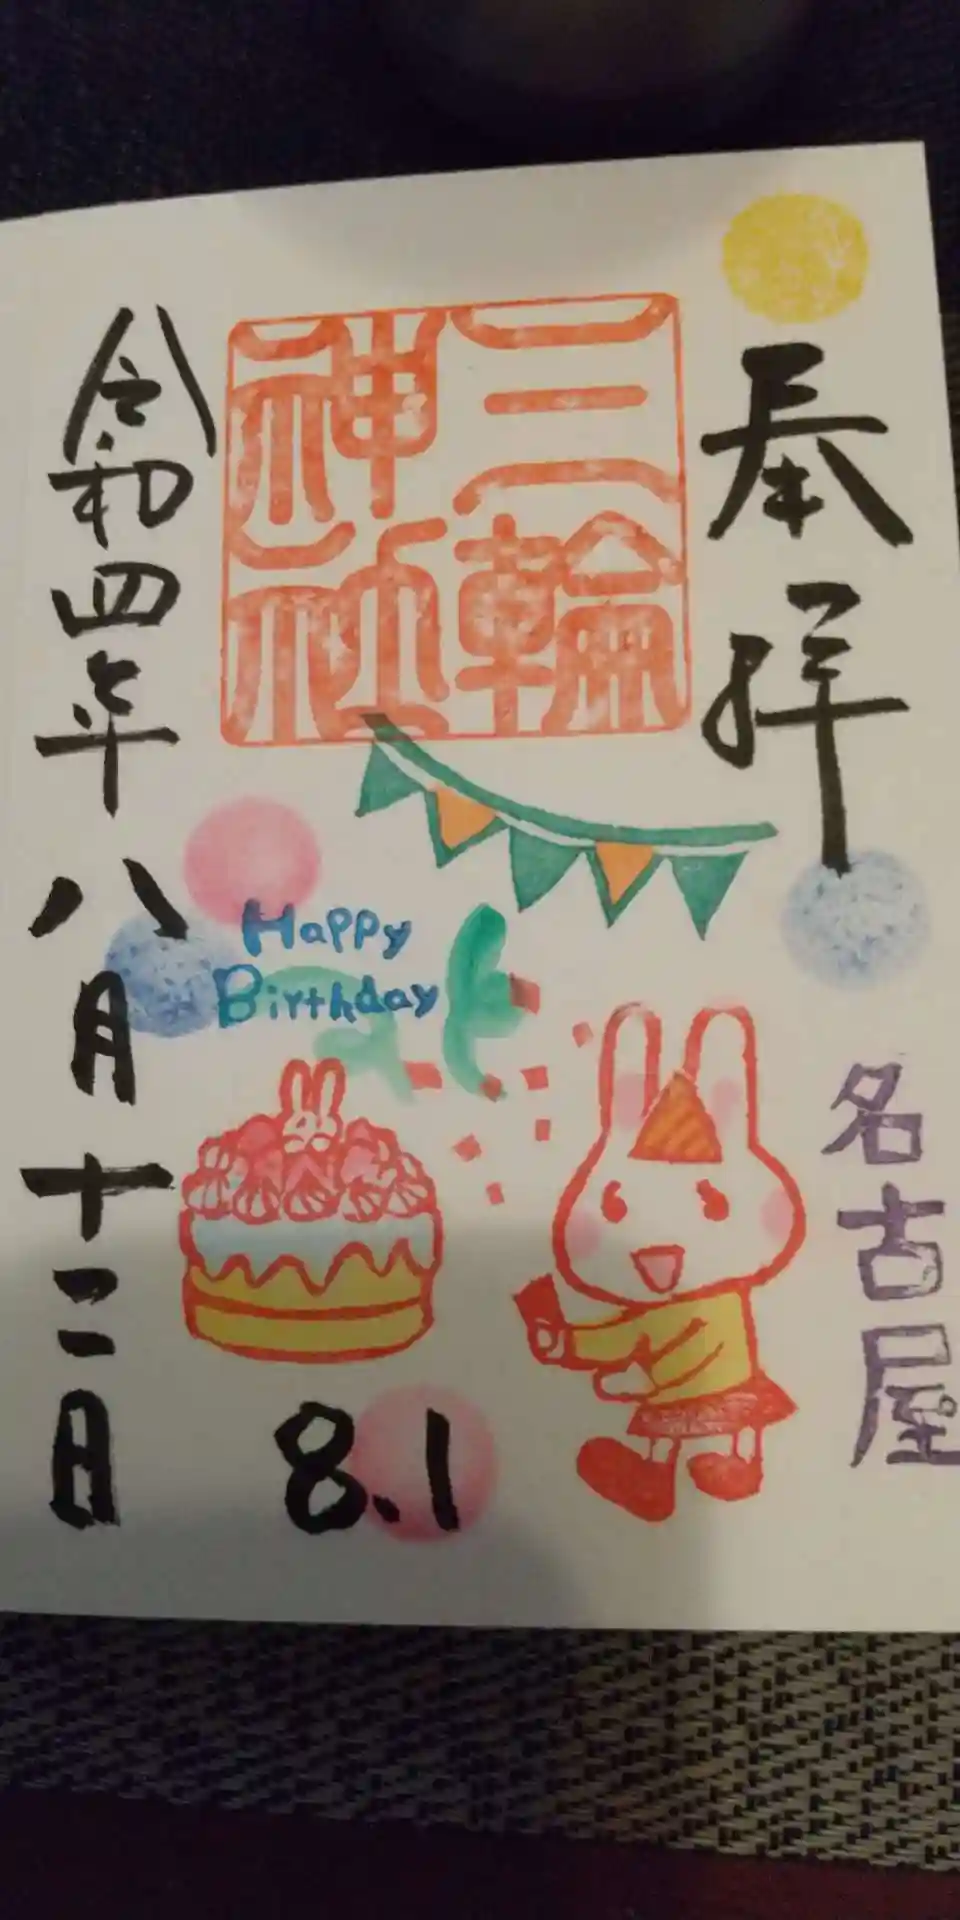 奉拝
名古屋
三輪
神社
Happy
Birthday
8.1
令和四年八月十二日